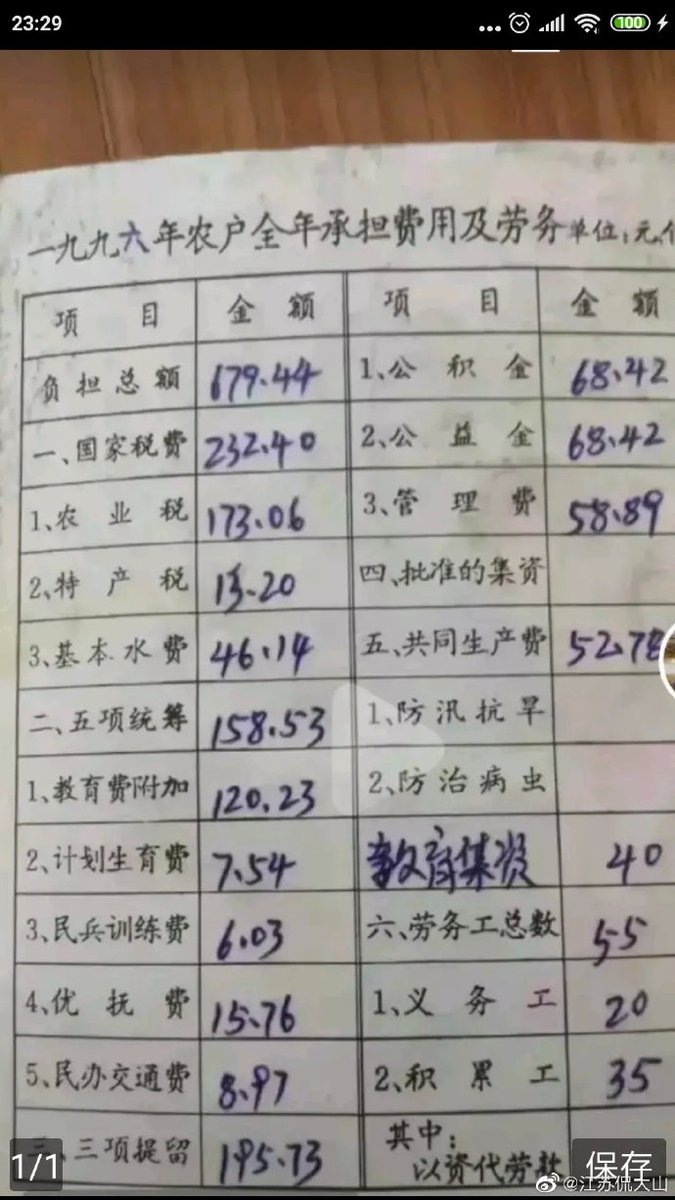 23:29
100
一九九六年农户全年承担费用及劳务 单位:元、
项 目 金 额 项 目 金 额
负担总额 679.44 1、公 积 金 68.42
一、国家税费 232.40 2、公 益 金 68.42
1、农 业 税 173.06 3、管 理 费 58.89
2、特 产 税 13.20 四、批准的集资
3、基本水费 46.14 五、共同生产费 52.78
二、五项统筹 158.53 1、防汛抗旱
1、教育费附加 120.23 2、防治病虫
2、计划生育费 7.54 教育集资 40
3、民兵训练费 6.03 六、劳务工总数 55
4、优 抚 费 15.76 1、义 务 工 20
5、民办交通费 8.97 2、积 累 工 35
三、三项提留 195.73 其中:
以资代劳款
1/1
保存
@江苏侃大山